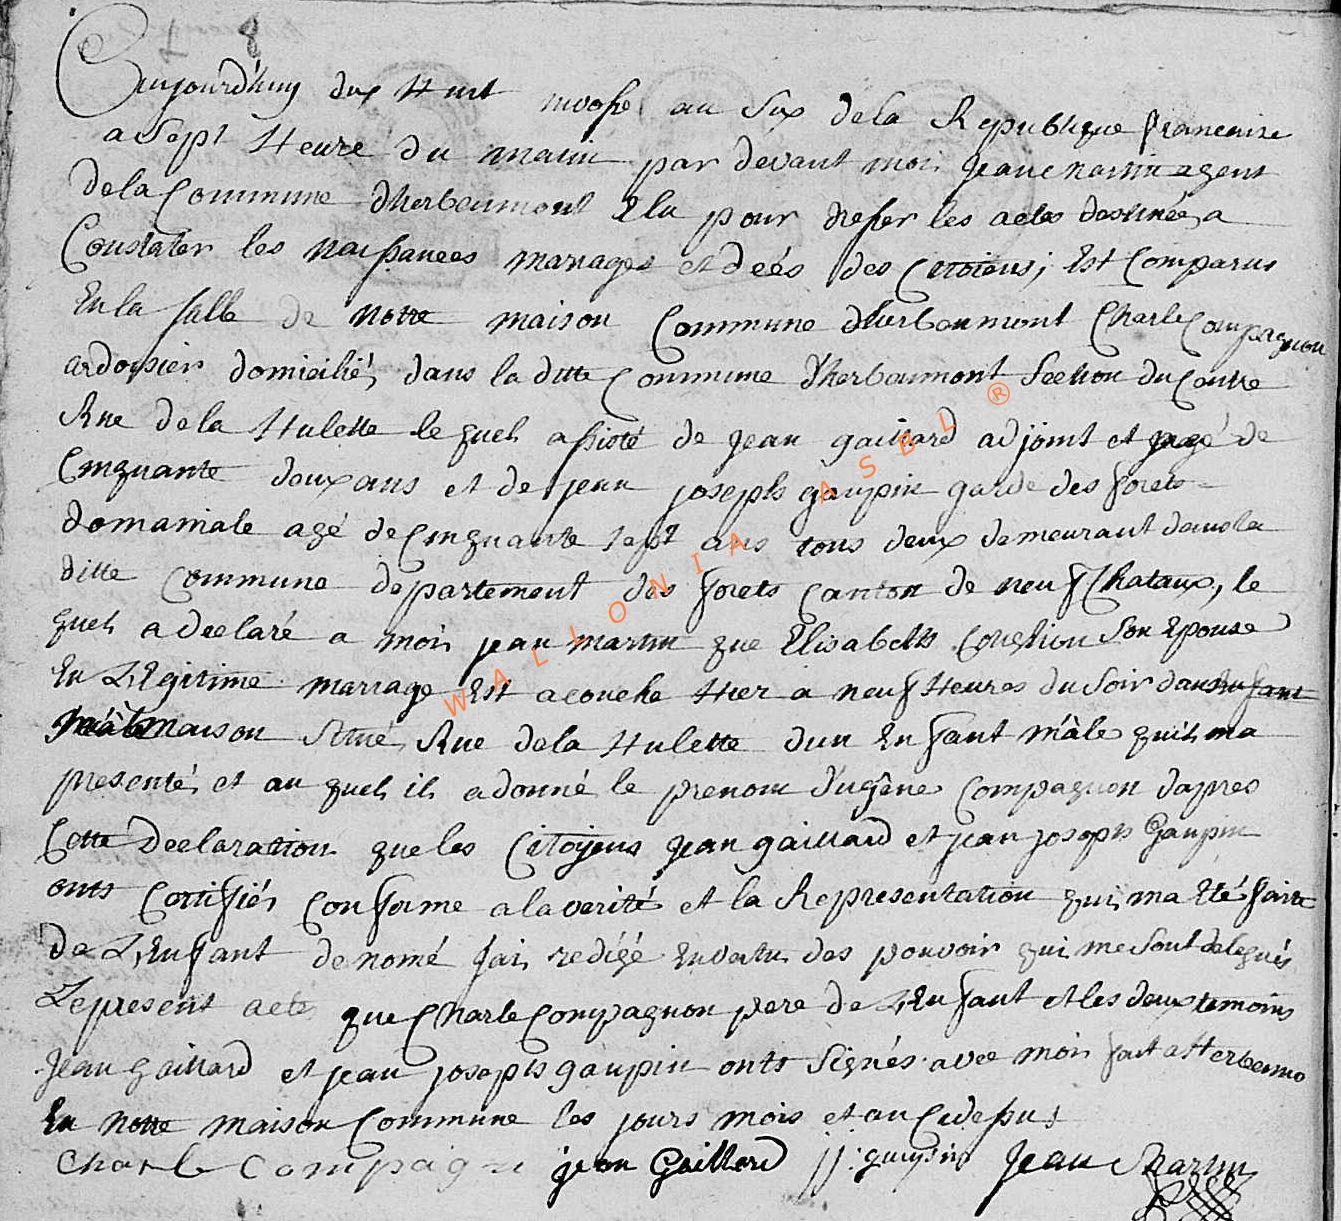 8
aujourd'huy dix Huit nivose an Six dela Republique francaise
a Sept Heure du matin par devant moi Jean martin agent
dela Commune dherbeumont Elu pour dresser les actes destinés a
Constater les naissances mariages et decés des Citoiens, Est Comparus
En la salle de notre maison Commune dherbeumont Charle Compagnon
ardoisier domicilié, dans la ditte Commune d'herbeumont Section du Centre
Rue de la Hulette le quel assisté de jean gaillard adjoint et agé de
Cinquante deux ans et de jean joseph gaupin garde des forets
domaniale agé de Cinquante sept ans tous deux demeurant dans la
ditte Commune departement des forets Canton de neufchataux, le
quel a declaré a moi jean martin que Elisabeth son Epouse
En LEgitime mariage Est acouche Hier a neuf Heures du Soir dans
maison Situé, Rue dela Hulette dun Enfant mâle quil ma
presenté, et au quel il a donné le prenom d'ugêne Compagnon dapres
Cette declaration que les Citoyens jean gaillard et jean joseph Gaupin
onts Certifiés Conforme a la verité et la Representation qui ma Eté faite
de L'Enfant denomé jai redigé En vertu des pouvoir qui me sont delegués
Le present acte que Charle Compagnon pere de LEnfant et les deux temoins
Jean gaillard et jean joseph gaupin onts Signés avec moi fait a Herbeumo
En notre maison Commune les jours mois et an Cidessus
Charle Compagn jean Gaillard jj: gaupin Jean Martin
WALLONIA ASBL ®